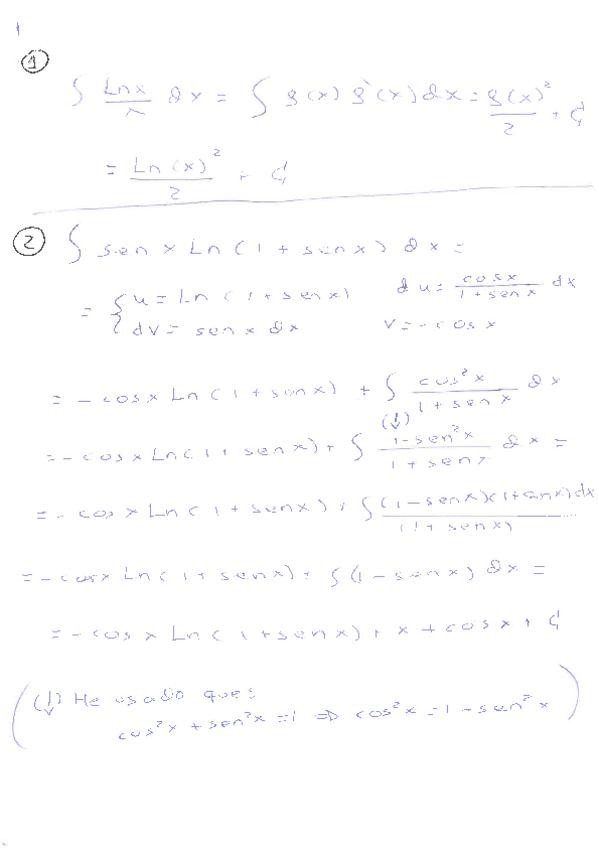 1
① ∫ Lnx/x dx = ∫ g(x) g'(x) dx = g(x)²/2 + C
= Ln(x)²/2 + C
② ∫ sen x Ln(1 + sen x) dx =
= { u = Ln(1 + sen x) du = cosx/(1 + sen x) dx
dv = sen x dx v = -cos x
= -cosx Ln(1 + sen x) + ∫ cos²x/(1 + sen x) dx
= -cosx Ln(1 + sen x) + ∫ (↓) (1-sen²x)/(1 + sen x) dx =
= -cosx Ln(1 + sen x) + ∫ (1-senx)(1+senx)dx/(1+senx)
= -cosx Ln(1 + sen x) + ∫(1-senx) dx =
= -cosx Ln(1 + senx) + x + cosx + C
((↓) He usado que:
cos²x + sen²x = 1 ⇒ cos²x = 1 - sen²x)